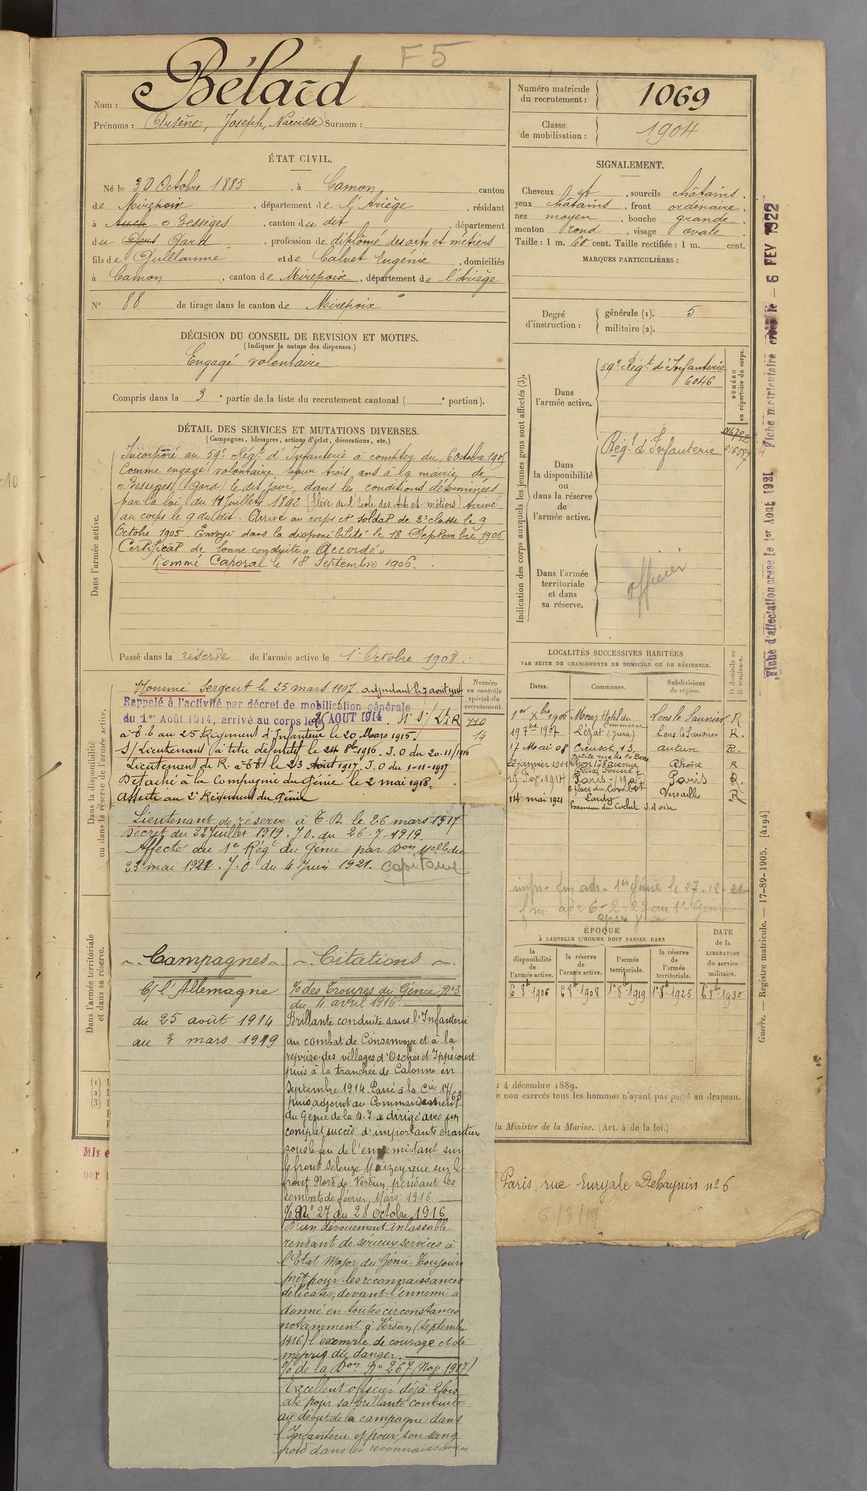 F5
Nom : Bélard
Prénoms : Arsène, Joseph, Narcisse Surnom :
ÉTAT CIVIL.
Né le 30 Octobre 1885, à Camon, canton
de Mirepoix, département de l'Ariège, résidant
à Auch Bessèges, canton du dit, département
du Gers Gard, profession de diplômé des arts et métiers
fils de Guillaume et de Calvet Eugénie, domiciliés
à Camon, canton de Mirepoix, département de l'Ariège
N° 88 de tirage dans le canton de Mirepoix
DÉCISION DU CONSEIL DE REVISION ET MOTIFS.
(Indiquer la nature des dispenses.)
Engagé volontaire
Compris dans la 3e partie de la liste du recrutement cantonal ( e portion).
DÉTAIL DES SERVICES ET MUTATIONS DIVERSES.
(Campagnes, blessures, actions d'éclat, décorations, etc.)
Dans l'armée active.
Incorporé au 59e Régt d'Infanterie à compter du 6 octobre 1905
Comme engagé volontaire pour trois ans à la mairie de
Bessèges (Gard) le dit jour, dans les conditions déterminées
par la loi du 11 Juillet 1892 (Élève de l'école des Arts et métiers) Arrivé
au corps le 9 du dit. Arrivé au corps et soldat de 2e classe le 9
Octobre 1905. Envoyé dans la disponibilité le 18 Septembre 1906
Certificat de bonne conduite "Accordé"
Nommé Caporal le 18 Septembre 1906.
Passé dans la réserve de l'armée active le 1er Octobre 1908.
Dans la disponibilité
ou dans la réserve de l'armée active.
Nommé Sergent le 25 mars 1907. adjudant le 3 août 1914
Rappelé à l'activité par décret de mobilisation générale
du 1er Août 1914, arrivé au corps le 25 AOUT 1914
à T.t. au 25 Régiment d'Infanterie le 20 Mars 1915.
S/Lieutenant (à titre définitif) le 24 8bre 1916. J.O du 20-11/1916
Lieutenant de R. à T.t le 23 Août 1917. J.O du 1-11-1917
Détaché à la Compagnie du Génie le 2 mai 1918.
Affecté au 2e Régiment du Génie
Lieutenant de réserve à T.D. le 26 mars 1917
décret du 22 Juillet 1919. J.O. du 26-7-1919
Affecté au 1er Régt du Génie par Don Mselle du
23 mai 1921. J.O du 4 Juin 1921. capitaine
Dans l'armée territoriale
et dans sa réserve.
Campagnes
C/ l'Allemagne
du 25 août 1914
au 3 mars 1919
Citations
O/ des Troupes du Génie N°3
du 4 avril 1916
Brillante conduite dans l'Infanterie
au combat de Consenvoye et à la
reprise des villages d'Osches et Ippécourt
puis à la tranchée de Calonne en
Septembre 1914. Passé à la Cie 17/63
puis adjoint au Commandement
du Génie de la D.I. a dirigé avec un
complet succès d'importants chantiers
sous le feu de l'ennemi tant sur
le front Selouze Maizey que sur le
front Nord de Verdun pendant les
combats de février, Mars 1916
O/ N° 27 du 28 octobre 1916
D'un dévouement inlassable
rendant de sérieux services à
l'État Major du Génie. Toujours
prêt pour les reconnaissances
délicates, devant l'ennemi a
donné en toutes circonstances
notamment à Verdun (Septembre
1916) l'exemple de courage et de
mépris du danger.
O/ de la Don N° 267 (Nov 1917)
Excellent officier déjà 2 fois
cité pour sa brillante conduite
au début de la campagne dans
l'Infanterie et pour son sang
froid dans les reconnaissances
Numéro matricule
du recrutement : 1069
Classe
de mobilisation : 1904
SIGNALEMENT.
Cheveux et, sourcils châtains,
yeux châtains, front ordinaire,
nez moyen, bouche grande,
menton rond, visage ovale.
Taille : 1 m. 60 cent. Taille rectifiée : 1 m. cent.
MARQUES PARTICULIÈRES :
Degré
d'instruction :
générale (1). 5
militaire (2).
Indication des corps auxquels les jeunes gens sont affectés (3).
NUMÉRO
au répertoire du corps.
Dans
l'armée active.
59e Régt d'Infanterie
6046
Dans
la disponibilité
ou
dans la réserve
de
l'armée active.
Régt d'Infanterie
Dans l'armée
territoriale
et dans
sa réserve.
officier
Numéro
au contrôle
spécial du
recrutement.
LOCALITÉS SUCCESSIVES HABITÉES
PAR SUITE DE CHANGEMENTS DE DOMICILE OU DE RÉSIDENCE.
D. domicile ou
R. résidence.
Dates. Communes. Subdivisions
de région.
1er Xbre 1906 Lons le Saunier R
19 7bre 1907 Lézat (Jura) Lons le Saunier R.
17 Mai 08 Creusot autun R.
22 janvier Rhône R
1914 Paris Paris R.
14 mai 1921 Versailles R
ÉPOQUE
À LAQUELLE L'HOMME DOIT PASSER DANS
DATE
de la
LIBÉRATION
du service
militaire.
la
disponibilité
de
l'armée active.
la
réserve de
l'armée active.
l'armée
territoriale.
la réserve
de l'armée
territoriale.
6 8bre 1906 6 8bre 1908 1er 8bre 1919 1er 8bre 1925 6 8bre 1930
u 4 décembre 1889.
e non exercés tous les hommes n'ayant pas passé au drapeau.
du Ministre de la Marine. (Art. 4 de la loi.)
Paris, rue Euryale Dehaynin n° 6
6/8/19
Mis e
par
Fiche d'affectation créée le 1er Aout 1921
Fiche matriculaire créée le - 6 FEV 1922
Guerre. — Registre matricule. — 17-89-1905. [4194]